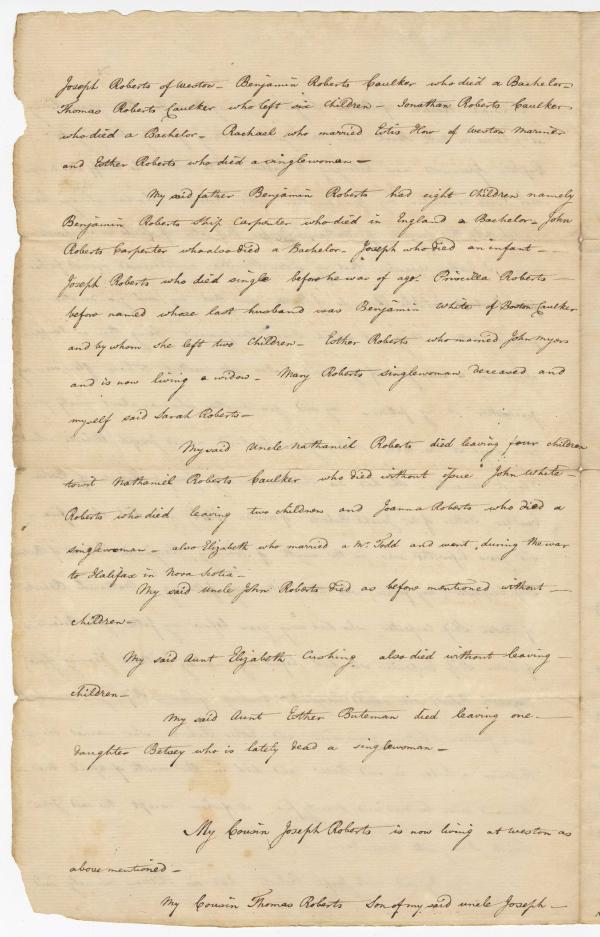 Joseph Roberts of Weston - Benjamin Roberts Caulker who died a Bachelor -
Thomas Roberts Caulker who left six Children - Jonathan Roberts Caulker
who died a Bachelor - Rachael who married Estis How of Weston Mariner
and Esther Roberts who died a singlewoman -
My said father Benjamin Roberts had eight Children namely
Benjamin Roberts Ship Carpenter who died in England a Bachelor - John
Roberts Carpenter who also died a Bachelor - Joseph who died an infant -
Joseph Roberts who died single before he was of age. Priscilla Roberts -
before named whose last husband was Benjamin White of Boston Caulker
and by whom she left two Children - Esther Roberts who married John Myers
and is now living a widow - Mary Roberts singlewoman deceased and
myself said Sarah Roberts -
My said Uncle Nathaniel Roberts died leaving four children
towit Nathaniel Roberts Caulker who died without issue John White -
Roberts who died leaving two children and Joanna Roberts who died a
singlewoman - also Elizabeth who married a Mr. Todd and went, during the war
to Halifax in Nova Scotia -
My said Uncle John Roberts died as before mentioned without -
children -
My said Aunt Elizabeth Cushing also died without leaving -
children -
My said Aunt Esther Buteman died leaving one -
daughter Betsey who is lately dead a singlewoman -
My Cousin Joseph Roberts is now living at Weston as
above mentioned -
My Cousin Thomas Roberts Son of my said uncle Joseph -